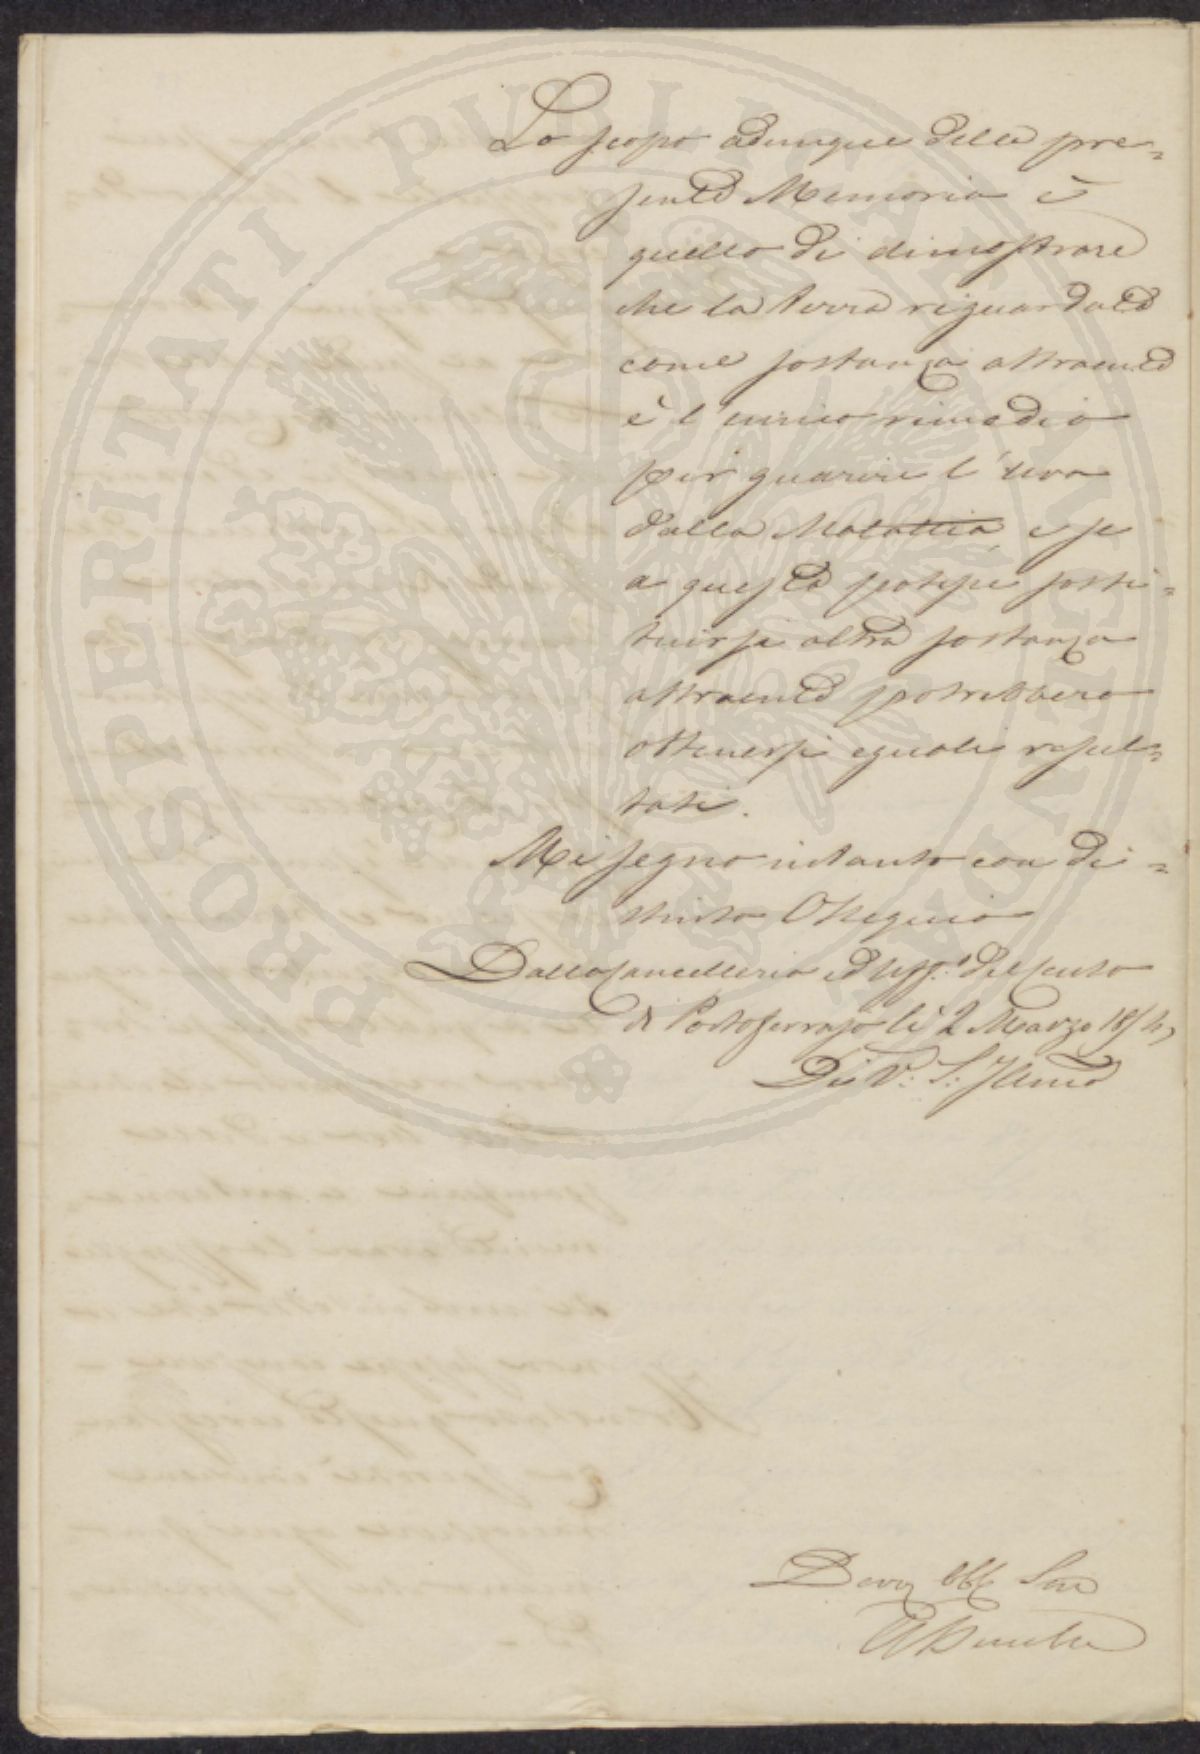 Lo scopo adunque della pre=
sente Memoria è
quello di dimostrare
che la terra riguardata
come sostanza attraente
è l'unico rimedio
per guarire l'uva
dalla Malattia, e se
a questa potesse sosti=
tuirsi altra sostanza
attraente potrebbero
ottenersi eguali resul=
tati.
Mi segno intanto con di=
stinto Ossequio
Dalla Cancelleria ed Uff:° del Censo
di Portoferrajo li 2 Marzo 1854
Di V: S: Illma
Devmo Obb Ser
PROSPERITATI PUBLICAE AUGENDAE